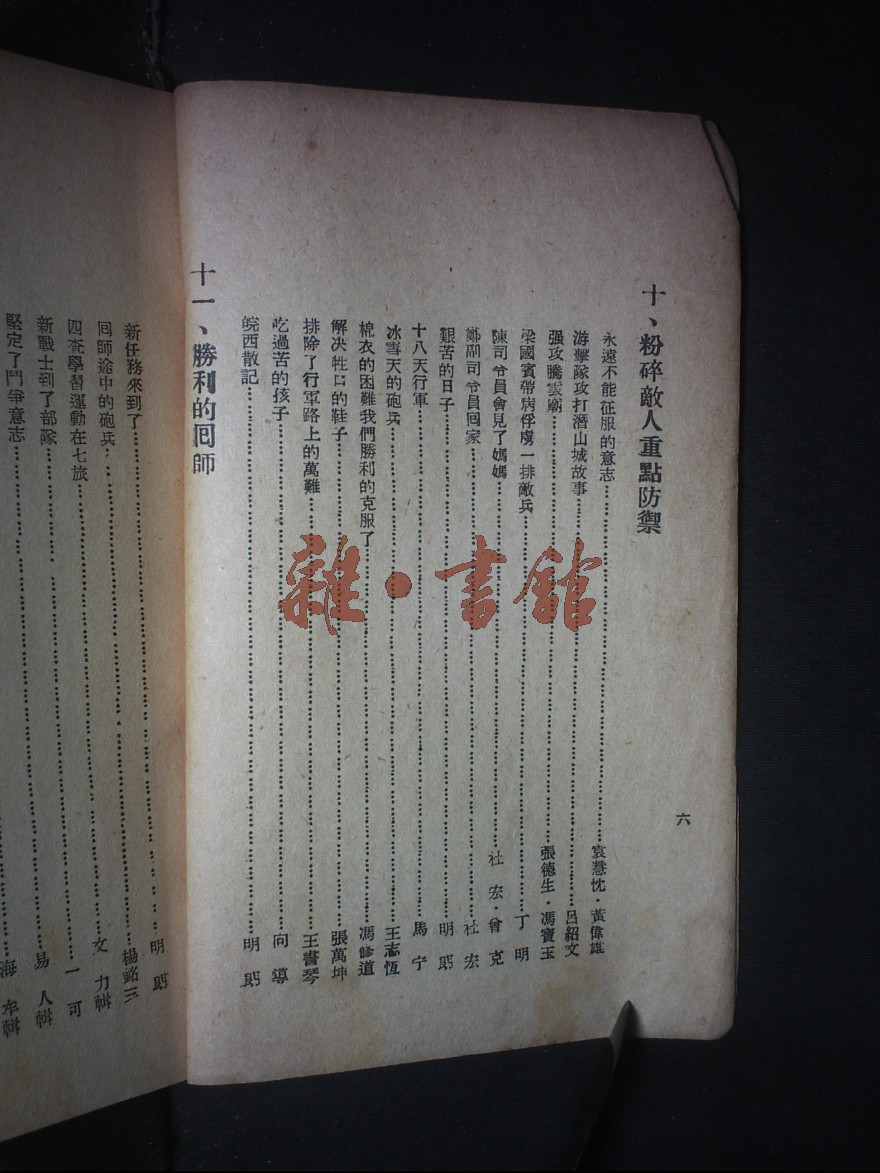 十、粉碎敵人重點防禦
永遠不能征服的意志……袁慧忱·黃偉雄
游擊隊攻打潛山城故事……呂紹文
强攻騰雲廟……張德生·馮寶玉
梁國賓帶病俘虜一排敵兵……丁 明
陳司令員會見了媽媽……杜 宏·曾 克
鄭副司令員囘家……杜 宏
艱苦的日子……明 朗
十八天行軍……馬 宁
冰雪天的砲兵……王志恆
棉衣的困難我們勝利的克服了……馮修道
解决牲口的鞋子……張萬坤
排除了行軍路上的萬難……王書琴
吃過苦的孩子……向 導
皖西散記……明 朗
六
十一、勝利的囘師
新任務來到了……明 朗
囘師途中的砲兵……楊銘三
四查學習運動在七旅……文 力輯
新戰士到了部隊……一 可
堅定了鬥爭意志……易 人輯
海 牟輯
雜·書館